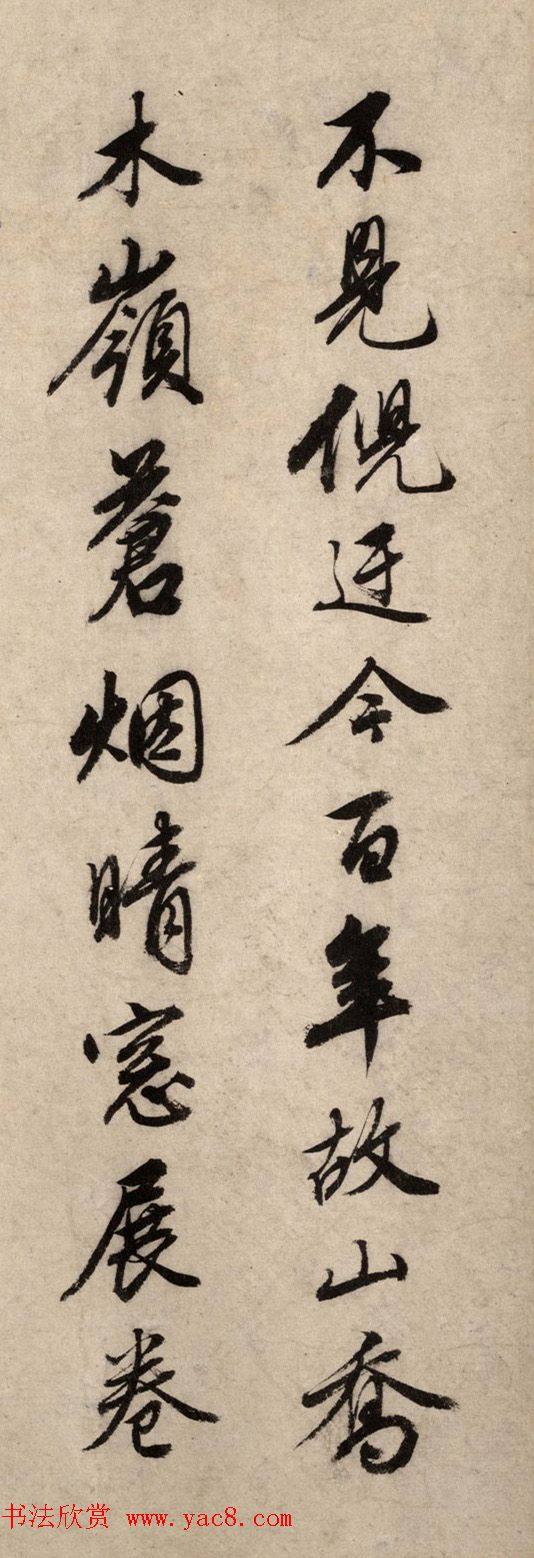 不見倪迂今百年故山喬
木嶺蒼烟晴窓展卷
书法欣赏 www.yac8.com